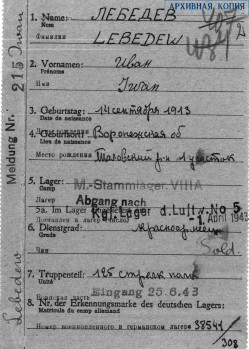 АРХИВНАЯ КОПИЯ
1. Name: ЛЕБЕДЕВ
Фамилия LEBEDEW
2. Vornamen: Иван
Prénoms
Iwan
3. Geburtstag: 14 сентября 1913
Date de naissance
4. Geburtsort: Воронежская об
Lieu de naissance
Место рождения
5. Lager: M.-Stammlager VIIIA
Camp
Abgang nach
5a. Im Lager Kr. Gef. Lager d. Luftw. No 5
April 1943
6. Dienstgrad: красноармеец
Grade
Sold.
7. Truppenteil: 125 стрелк полк
Unité
Eingang 25.6.43
8. Nr. der Erkennungsmarke des deutschen Lagers:
Matricule du camp allemand
Номер военнопленного в германском лагере 38541/
308
Meldung Nr. 215
Iwan
Lebedew